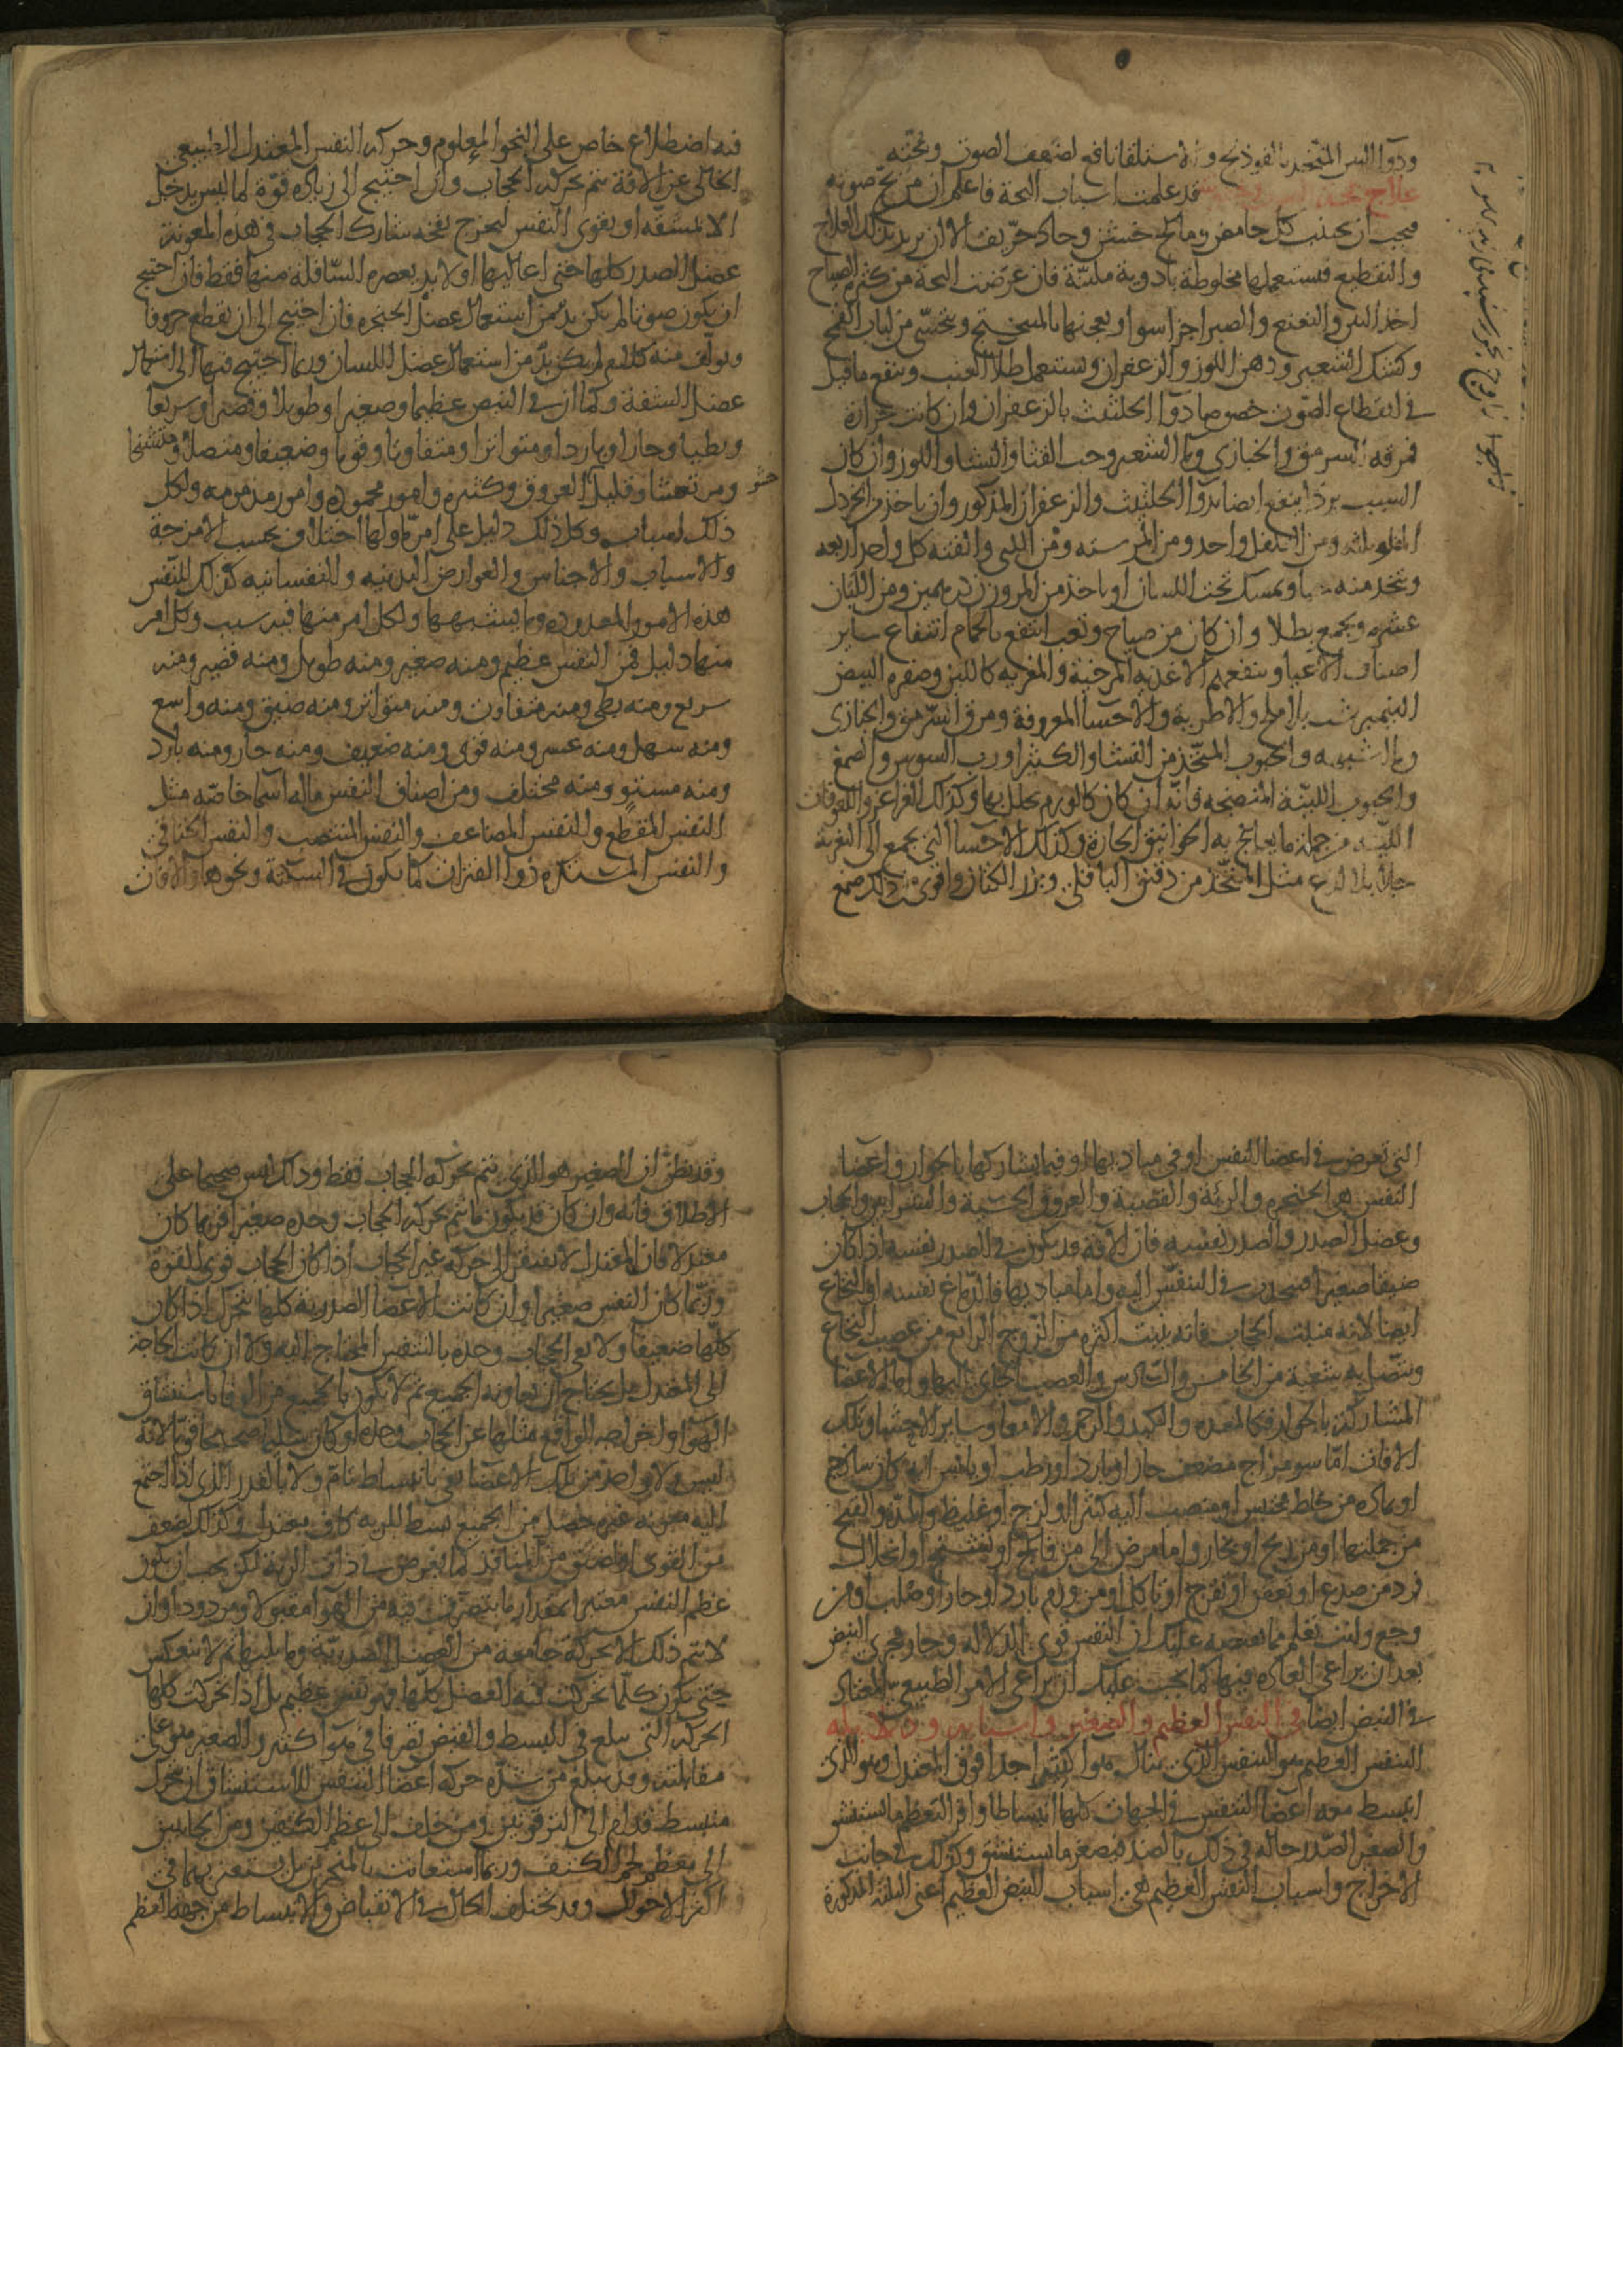 ودوا التين المتخذ بالفوذنج والاستلقا نافع لضعف الصوت وبحته
علاج بحة قد علمت اسباب البحة فاعلم ان من بح صوته
فيجب ان يجتنب كل حامض ومالح خشن وحاد حريف الا ان يريد بذلك العلاج
والتقطيع فيستعملها مخلوطة بادوية ملينة فان عرضت البحة من كثرة الصياح
اخذ التين والنعنع والصبر اجزا سوا ويعجنها بالميبختج ويتحسى من لباب القمح
وكشك الشعير ودهن اللوز والزعفران ويستعمل طلا العنب وينفع ما قيل
في انقطاع الصوت خصوصا دوا الحلتيت بالزعفران وان كانت حرارة
فمرقة السرمق والخبازى وما الشعير وحب القثا والنشا واللوز وان كان
السبب بردا ينفع ايضا بدوا الحلتيت والزعفران المذكور وان ياخذ من الخردل
المقلو ثلثه ومن الفلفل واحد ومن الكرسنه ومن اللبنى والقنه كل واحد اربعه
ويتخذ منه حبا ويمسك تحت اللسان او ياخذ من المر وزن درهمين ومن اللبان
عشره ويجمع بطلا وان كان من صياح وتعب انتفع بالحمام انتفاع ساير
اصناف الاعيا وينفعهم الاغذيه المرخية والمغريه كاللبن وصفره البيض
النيمبرشت بلا ملح والاطرية والاحسا المعروفة ومرق السرمق والخبازى
وما الشبهه والحبوب المتخذ من النشا والكثيرا ورب السوس والصمغ
والحبوب اللينة المنضجه فانه ان كان كالورم تحلل بها وكذلك الغراغر واللعوقات
اللينه من جملة ما يعالج به الخوانيق الحارة وكذلك الاحسا التي يجمع الى التغرية
جلا بلا لذع مثل المتخذ من دقيق الباقلى وبزر الكتان واقوى من ذلك صمغ
فيه اضطلاع خاص على النحو المعلوم وحركه النفس المعتدل الطبيعي
الخالى عن الافة يتم بحركه الحجاب وان احتيج الى زياده قوة لما ليس يدخل
الا بالمشقه او يقوى النفس ليخرج نفخه شارك الحجاب في هذه المعونة
عضل الصدر كلها حتى اعاليها او لا بد بعصره السافله منها فقط فان احتيج
ان يكون صوتا لم يكن بد من استعمال عضل الحنجره فان احتيج الى ان يقطع حروفا
ويولف منه كلام لم يكن بد من استعمال عضل اللسان وربما احتيج فيها الى استعمال
عضل الشفة وكما ان في النبض عظيما وصغيرا وطويلا وقصيرا وسريعا
وبطيا وحارا وباردا ومتواترا ومتفاوتا وقويا وضعيفا ومتصلا ومتشنجا
ومرتعشا وقليل العروق وكثيره وامور محموده وامور مذمومه ولكل
ذلك اسباب وكل ذلك دليل على امر ما ولها اختلاف بحسب الامزجة
والاسباب والاجناس والعوارض البدنيه والنفسانيه كذلك للنفس
هذه الامور المعدوده وما يشبهها ولكل امر منها فيه سبب وكل امر
منها دليل فمن النفس عظيم ومنه صغير ومنه طويل ومنه قصير ومنه
سريع ومنه بطي ومنه متفاوت ومنه متواتر ومنه ضيق ومنه واسع
ومنه سهل ومنه عسر ومنه قوى ومنه ضعيف ومنه حار ومنه بارد
ومنه مستو ومنه مختلف ومن اصناف النفس ما له اسما خاصه مثل
النفس المقطع والنفس المضاعف والنفس المنتصب والنفس الخناقي
والنفس المستكره ذو الفترات كما يكون في السكتة ونحوها والافات
التي تعرض في اعضا النفس او في مباديها او فيما يشاركها بالجوار واعضا
النفس هي الحنجره والرئة والقصبة والعروق الخشنة والشرايين والحجاب
وعضل الصدر والصدر نفسه فان الافة قد يكون في الصدر نفسه اذا كان
ضيقا صغيرا فيحدث في التنفس الية واما مباديها فالدماغ نفسه او النخاع
ايضا لانه منبت الحجاب فانه ينبت اكثره من الزوج الرابع من عصب النخاع
ويتصل به شعبة من الخامس والسادس والعصب الجاى اليها واما الاعضا
المشاركة بالجوار فكالمعده والكبد والرحم والامعا وساير الاحشا وتلك
الافات اما سو مزاج مضعف حار او بارد او رطب او يابس ايه كان ساذج
او بماده من خلط محتبس او منصب اليه كثير او لزج او غليظ والمده والقيح
من جملتها او من ريح او بخار واما مرض الى من فالج او تشنج او انحلال
فرد من صدع او تعفن او تقرح او تاكل او من ورم بارد او حار او صلب او من
وجع ولست تعلم مما نقتصه عليك ان النفس قوى الدلاله وجار مجرى النبض
بعد ان يراعى العاده فيها كما يجب عليك ان يراعى الامر الطبيعي المعتاد
في النبض ايضا في النفس العظيم والصغير واسبابه ودلايله
النفس العظيم هو النفس الذي ينال هوا كثيرا جدا فوق المعتدل وهو الذي
ينبسط معه اعضا التنفس في الجهات كلها انبساطا وافر العظم ما يستنشق
والصغير الضد حاله في ذلك بالضد فيصغر ما يستنشق وكذلك في جانب
الاخراج واسباب النفس العظيم هي اسباب النبض العظيم اعني الثلثة المذكورة
وقد يظن ان الصغير هو الذي يتم بحركه الحجاب فقط وذلك ليس صحيحا على
الاطلاق فانه وان كان قد يكون ما يتم بحركه الحجاب وحده صغيرا فربما كان
معتدلا فان المعتدل لا يفتقر الى حركة غير الحجاب اذا كان الحجاب قوى القوة
وربما كان النفس صغيرا وان كانت الاعضا الصدرية كلها يتحرك اذا كان
كلها ضعيفا ولا يفى الحجاب وحده بالتنفس المحتاج اليه ولا ان كانت الحاجة
الى المعتدل بل يحتاج ان يعاونه الجميع ثم لا يكون بالجميع من الوفا باستنشاق
الهوا واخراجه الواقع مثلها عن الحجاب وحده لو كان سليما صحيحا قويا لانه
ليس ولا واحد من تلك الاعضا يفي بانبساط تام ولا بالقدر الذي اذا اجتمع
اليه معونة غيره حصل من الجميع بسط للريه كاف معتدل وكذلك لضعف
من القوى او لضيق من المنافذ كما يعرض في ذات الرية لكن يجب ان يكون
عظم النفس معتبرا بمقدار ما يتصرف فيه من الهوا مقبولا ومردودا وان
لا يتم ذلك الا بحركة جامعة من العضل الصدرية وما يليها ثم لا ينعكس
حتى يكون كلما تحركت فيه العضل كلها فهو نفس عظيم بل اذا تحركت كلها
الحركة التي يبلغ في البسط والقبض تصرفا في هوا كثير والصغير هو على
مقابلته وقد يبلغ من شدة حركه اعضا التنفس للاستنشاق ان يتحرك
منبسطه قدام الى الترقوتين ومن خلف الى عظم الكتفين ومن الجانبين
الى معظم لحم الكتف وربما استعانت بالمنخرين بل يستعين بهما في
اكثر الاحوال وقد يختلف الحال في الانقباض والانبساط من جهة العظم